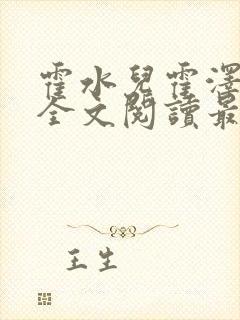 霍水兒霍澤
全文閱讀最
王生